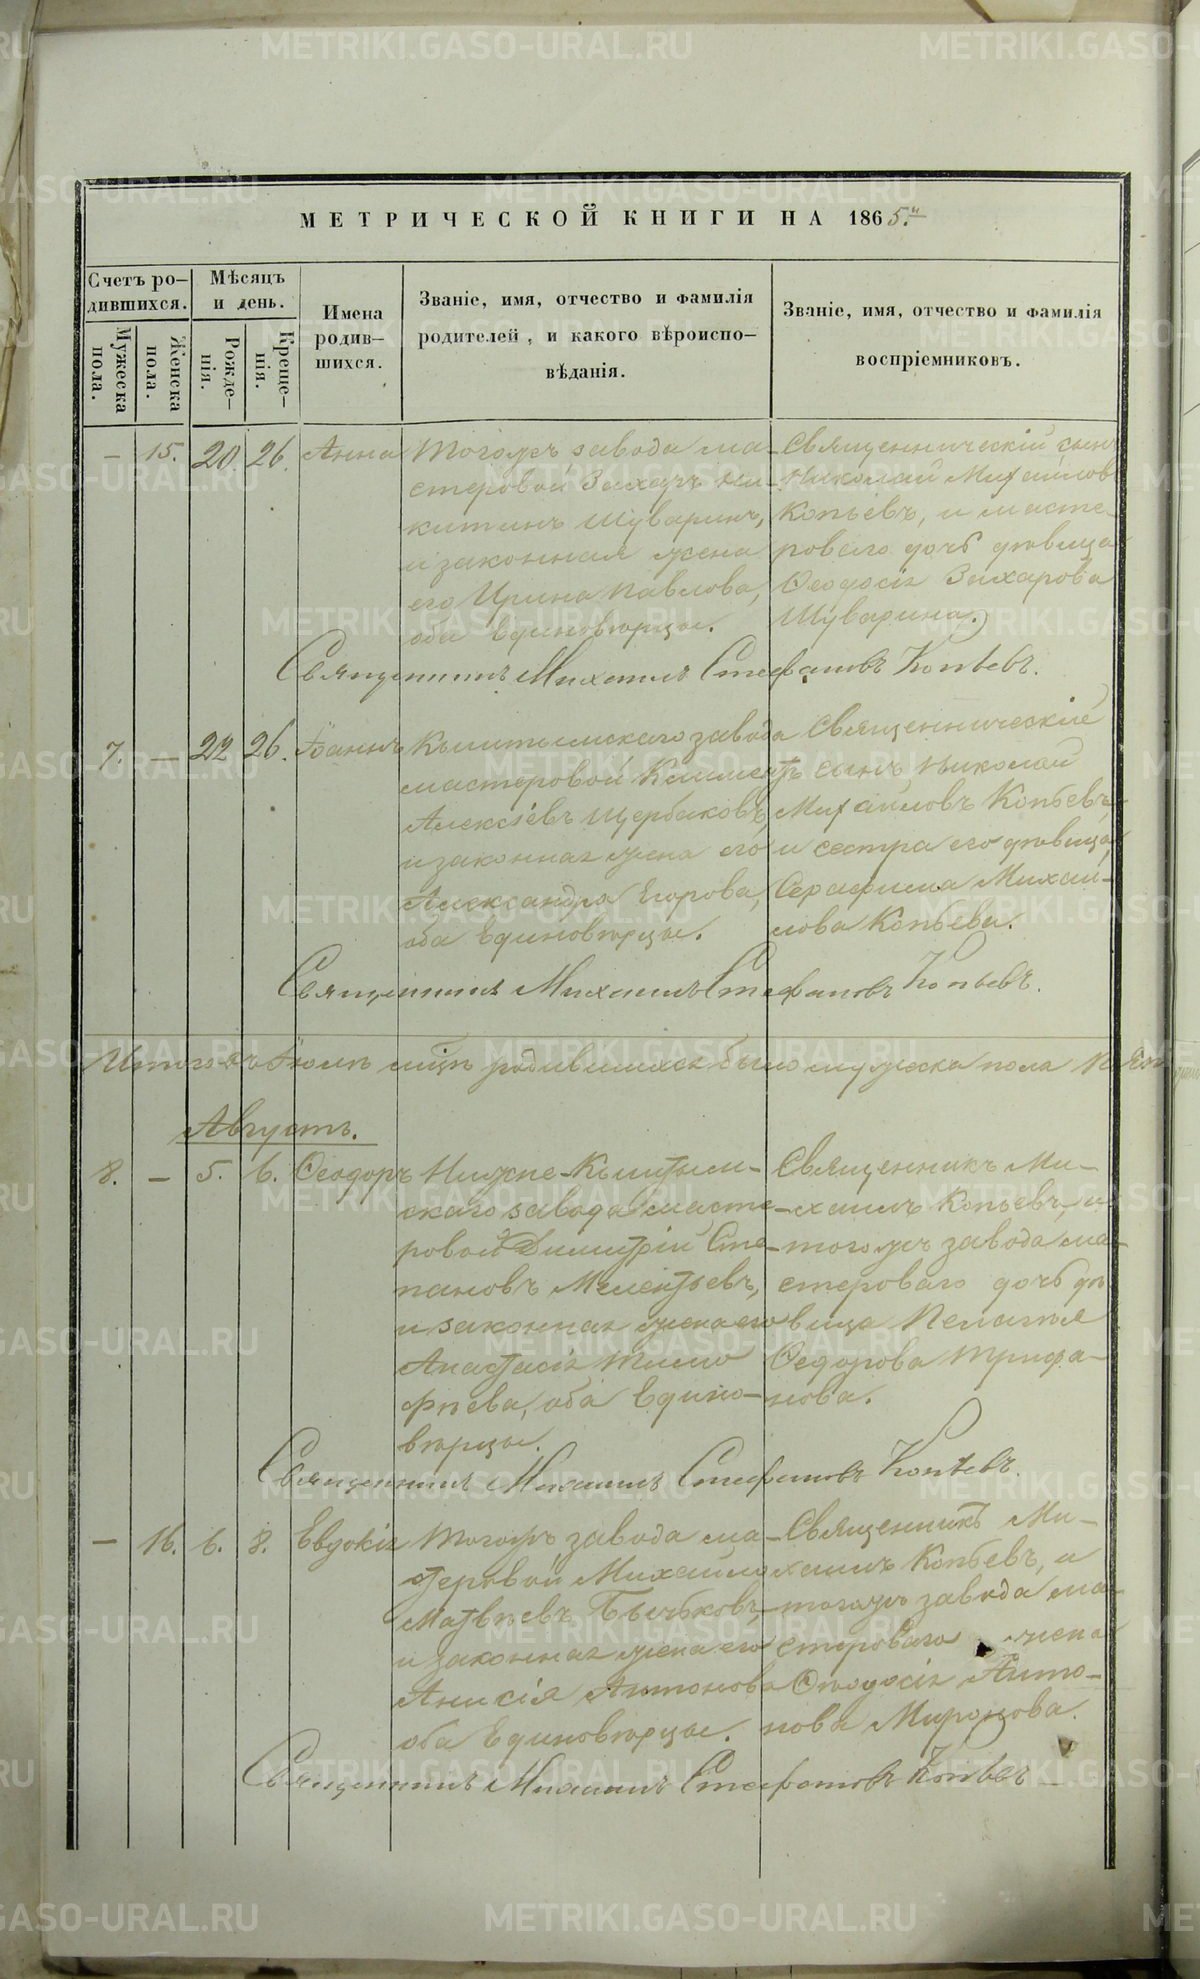 МЕТРИЧЕСКОЙ КНИГИ НА 1865.й
Счетъ ро-
дившихся.
Мужеска
пола.
Женска
пола.
Мѣсяцъ
и день.
Рожде-
нія.
Креще-
нія.
Имена
родив-
шихся.
Званіе, имя, отчество и фамилія
родителей, и какого вѣроиспо-
вѣданія.
Званіе, имя, отчество и фамилія
воспріемниковъ.
— 15. 20. 26. Анна
Тогожъ завода ма-
стеровой Захаръ Ни-
китинъ Шуваринъ,
и законная жена
его Ирина Павлова,
оба Единовѣрцы.
Священническій сынъ
Николай Михайловъ
Копьевъ, и масте-
роваго дочь дѣвица
Ѳеодосія Захарова
Шуварина.
Священникъ Михаилъ Стефановъ Копьевъ.
7. — 22 26. Іоаннъ
Кыштымскаго завода
мастеровой Климентъ
Алексіевъ Щербаковъ,
и законная жена его
Александра Егорова,
оба Единовѣрцы.
Священническіе
сынъ Николай
Михайловъ Копьевъ,
и сестра его дѣвица
Серафима Михай-
лова Копьева.
Священникъ Михаилъ Стефановъ Копьевъ.
Итого въ Іюлѣ мцѣ родившихся было мужеска пола
Августъ.
8. — 5. 6. Ѳеодоръ
Нижне-Кыштым-
скаго завода масте-
ровой Димитрій Сте-
пановъ Мелентьевъ,
и законная жена его
Анастасія Тимо
фѣева, оба Едино-
вѣрцы.
Священникъ Ми-
хаилъ Копьевъ, и
тогожъ завода ма-
стероваго дочь дѣ
вица Пелагія
Ѳедорова Трифа-
нова.
Священникъ Михаилъ Стефановъ Копьевъ.
— 16. 6. 8. Евдокія
Тогожъ завода ма-
стеровой Михайло
Матвѣевъ Бычковъ,
и законная жена его
Анисія Антонова
оба Единовѣрцы.
Священникъ Ми-
хаилъ Копьевъ, и
тогожъ завода ма-
стероваго жена
Ѳеодосія Анто-
нова Миронова.
Священникъ Михаилъ Стефановъ Копьевъ
METRIKI.GASO-URAL.RU